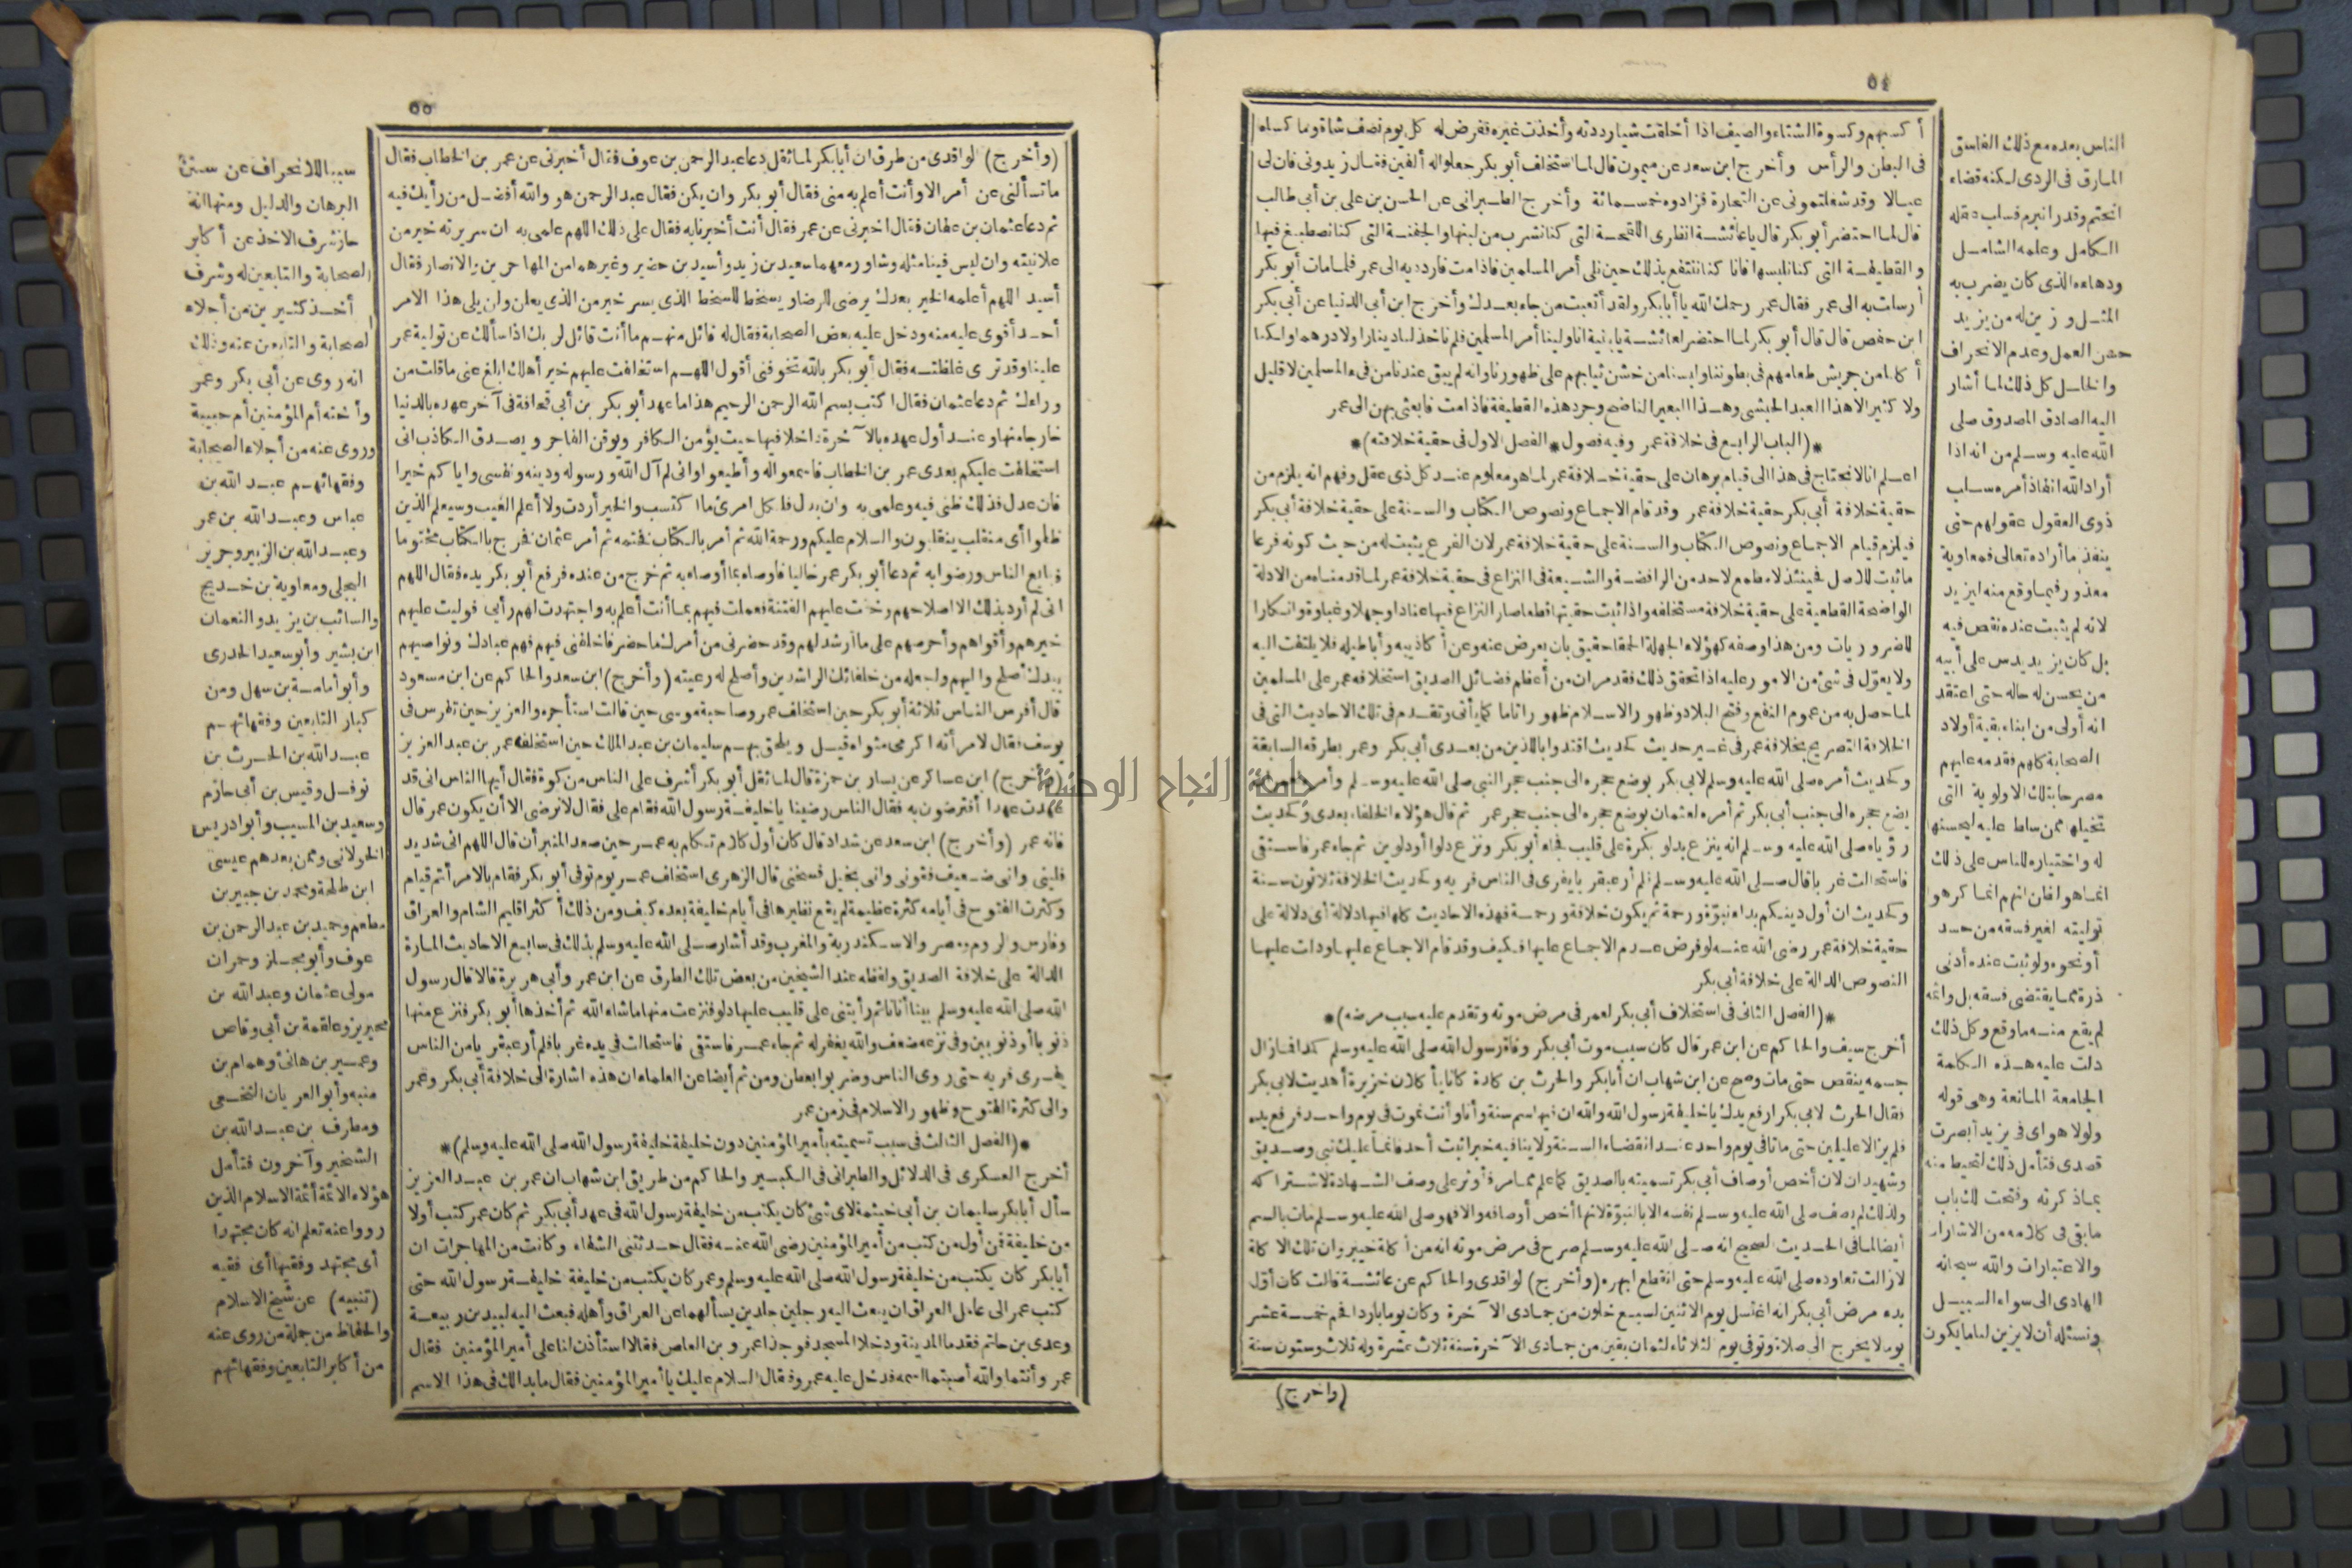 ٥٤
أكسبهم وكسوة الشتاء والصيف اذا أخلقت شيأرددته وأخذت غيره ففرض له كل يوم نصف شاة وما كساه
فى البطن والرأس وأخرج ابن سعد عن ميمون قال لما استخلف أبو بكر جعلوا له ألفين فقال زيدونى فان لى
عيالا وقد شغلتمونى عن التجارة فزادوه خمسمائة وأخرج الطبرانى عن الحسن بن على بن أبى طالب
قال لما احتضر أبو بكر قال ياعائشة انظرى اللقحة التى كنا نشرب من لبنها والجفنة التى كنا نصطبغ فيها
والقطيفة التى كنا نلبسها فانا كنا ننتفع بذلك حين نلى أمر المسلمين فاذا مت فاردديه الى عمر فلما مات أبو بكر
أرسلت به الى عمر فقال عمر رحمك الله ياأبابكر ولقد أتعبت من جاء بعدك وأخرج ابن أبى الدنيا عن أبى بكر
ابن حفص قال قال أبو بكر لما احتضر لعائشة يابنية انا ولينا أمر المسلمين فلم نأخذ لنا دينارا ولا درهما ولكنا
أكلنا من جريش طعامهم فى بطوننا ولبسنا من خشن ثيابهم على ظهورنا وانه لم يبق عندنا من فىء المسلمين لا قليل
ولا كثير الا هذا العبد الحبشى وهذا البعير الناضح وجرد هذه القطيفة فاذا مت فابعثى بهن الى عمر
*(الباب الرابع فى خلافة عمر وفيه فصول * الفصل الاول فى حقية خلافته)*
اعلم انا لا نحتاج فى هذا الى قيام برهان على حقية خلافة عمر لما هو معلوم عند كل ذى عقل وفهم انه يلزم من
حقية خلافة أبى بكر حقية خلافة عمر وقد قام الاجماع ونصوص الكتاب والسنة على حقية خلافة أبى بكر
فيلزم قيام الاجماع ونصوص الكتاب والسنة على حقية خلافة عمر لان الفرع يثبت له من حيث كونه فرعا
ما ثبت للاصل فحينئذ لا مطمع لاحد من الرافضة والشيعة فى النزاع فى حقية خلافة عمر لما قدمناه من الادلة
الواضحة القطعية على حقية خلافة مستخلفه واذا ثبت حقيتها قطعا صار النزاع فيها عنادا وجهلا وغباوة وانكارا
للضروريات ومن هذا وصفه كهؤلاء الجهلة الحمقا حقيق بان يعرض عنه وعن أكاذيبه وأباطيله فلا يلتفت اليه
ولا يعوّل فى شئ من الامور عليه اذا تحقق ذلك فقد مر ان من أعظم فضائل الصديق استخلافه عمر على المسلمين
لما حصل به من عموم النفع وفتح البلاد وظهور الاسلام ظهورا تاما كما يأتى وتقدم فى تلك الاحاديث التى فى
الخلافة التصريح بخلافة عمر فى غير حديث كحديث اقتدوا باللذين من بعدى أبى بكر وعمر بطرقه السابقة
وكحديث أمره صلى الله عليه وسلم لابى بكر بوضع حجره الى جنب حجر النبى صلى الله عليه وسلم وأمر لعمر بأن
يضع حجره الى جنب أبى بكر ثم أمره لعثمان بوضع حجره الى جنب حجر عمر ثم قال هؤلاء الخلفاء بعدى وكحديث
رؤياه صلى الله عليه وسلم انه ينزع بدلو بكرة على قليب فجاء أبو بكر ونزع دلوا أو دلوين ثم جاء عمر فاستقى
فاستحالت غربا قال صلى الله عليه وسلم فلم أر عبقريا يفرى فى الناس فريه وكحديث الخلافة ثلاثون سنة
وكحديث ان أول دينكم بدا نبوّة ورحمة ثم يكون خلافة ورحمة فهذه الاحاديث كلها فيها دلالة أى دلالة على
حقية خلافة عمر رضى الله عنه لو فرض عدم الاجماع عليها فكيف وقد قام الاجماع عليها ودلت عليها
النصوص الدالة على خلافة أبى بكر
*(الفصل الثانى فى استخلاف أبى بكر لعمر فى مرض موته وتقدم عليه سبب مرضه)*
أخرج سيف والحاكم عن ابن عمر قال كان سبب موت أبى بكر وفاة رسول الله صلى الله عليه وسلم كمدا فما زال
جسمه ينقص حتى مات وصح عن ابن شهاب ان أبابكر والحرث بن كلدة كانا يأكلان خزيرة أهديت لابى بكر
فقال الحرث لابى بكر ارفع يدك ياخليفة رسول الله والله ان فيها سم سنة وأنا وأنت نموت فى يوم واحد فرفع يده
فلم يزالا عليلين حتى ماتا فى يوم واحد عند انقضاء السنة ولا ينافيه خبر اثبت أحد فانما عليك نبى وصديق
وشهيدان لان أخص أوصاف أبى بكر تسميته بالصديق كما علم مما مر فأوثر على وصف الشهادة لاشتراكه
ولذلك لم يصف صلى الله عليه وسلم نفسه الا بالنبوّة لانها أخص أوصافه والا فهو صلى الله عليه وسلم مات بالسم
أيضا لما فى الحديث الصحيح انه صلى الله عليه وسلم صرح فى مرض موته انه من أكلة خيبر وان تلك الاكلة
لازالت تعاوده صلى الله عليه وسلم حتى انقطع ابهره (وأخرج) الواقدى والحاكم عن عائشة قالت كان أوّل
بدء مرض أبى بكر انه اغتسل يوم الاثنين لسبع خلون من جمادى الآخرة وكان يوما باردا فحم خمسة عشر
يوما لا يخرج الى صلاة وتوفى يوم الثلاثاء لثمان بقين من جمادى الآخرة سنة ثلاث عشرة وله ثلاث وستون سنة
(وأخرج)
الناس بعده مع ذلك الفاسق
المارق فى الردى لكنه قضاء
انحتم وقدر انبرم فسلب عقله
الكامل وعلمه الشامل
ودهاءه الذى كان يضرب به
المثل وزين له من يزيد
حسن العمل وعدم الانحراف
والخلل كل ذلك لما أشار
اليه الصادق المصدوق صلى
الله عليه وسلم من انه اذا
أراد الله انفاذ أمره سلب
ذوى العقول عقولهم حتى
ينفذ ما أراده تعالى فمعاوية
معذور فيما وقع منه ليزيد
لانه لم يثبت عنده نقص فيه
بل كان يزيد يدس على أبيه
من يحسن له حاله حتى اعتقد
انه أولى من ابناء بقية أولاد
الصحابة كلهم فقدمه عليهم
مصرحا بتلك الاولوية التى
تخيلها ممن سلط عليه ليحسنها
له واختياره للناس على ذلك
انما هو لظن انهم انما كرهوا
توليته لغير فسقه من حسد
أو نحوه ولو ثبت عنده أدنى
ذرة مما يقتضى فسقه بل واثمه
لم يقع منه ما وقع وكل ذلك
دلت عليه هذه الكلمة
الجامعة المانعة وهى قوله
ولولا هواى فى يزيد أبصرت
قصدى فتأمل ذلك لتحيط منه
بما ذكرته وفتحت لك باب
ما بقى فى كلامه من الاشارات
والاعتبارات والله سبحانه
الهادى الى سواء السبيل
ونسئله أن لا يزين لنا ما يكون
٥٥
(وأخرج) الواقدى من طرق ان أبابكر لما ثقل دعا عبد الرحمن بن عوف فقال أخبرنى عن عمر بن الخطاب فقال
ما تسألنى عن أمر الا وأنت أعلم به منى فقال أبو بكر وان يكن فقال عبد الرحمن هو والله أفضل من رأيك فيه
ثم دعا عثمان بن عفان فقال اخبرنى عن عمر فقال أنت أخبرنا به فقال على ذلك اللهم علمى به ان سريرته خير من
علانيته وان ليس فينا مثله وشاور معهما سعيد بن زيد وأسيد بن حضير وغيرهما من المهاجرين والانصار فقال
أسيد اللهم أعلمه الخير بعدك يرضى للرضا ويسخط للسخط الذى يسر خير من الذى يعلن ولن يلى هذا الامر
أحد أقوى عليه منه ودخل عليه بعض الصحابة فقال له قائل منهم ما أنت قائل لربك اذا سألك عن تولية عمر
علينا وقد ترى غلظته فقال أبو بكر بالله تخوفنى أقول اللهم استخلفت عليهم خير أهلك ابلغ عنى ما قلت من
وراءك ثم دعا عثمان فقال اكتب بسم الله الرحمن الرحيم هذا ما عهد أبو بكر بن أبى قحافة فى آخر عهده بالدنيا
خارجا منها وعند أول عهده بالآخرة داخلا فيها حيث يؤمن الكافر ويوقن الفاجر ويصدق الكاذب انى
استخلفت عليكم بعدى عمر بن الخطاب فاسمعوا له وأطيعوا وانى لم آل الله ورسوله ودينه ونفسى واياكم خيرا
فان عدل فذلك ظنى فيه وعلمى به وان بدل فلكل امرئ ما اكتسب والخير أردت ولا أعلم الغيب وسيعلم الذين
ظلموا أى منقلب ينقلبون والسلام عليكم ورحمة الله ثم أمر بالكتاب فختمه ثم أمر عثمان فخرج بالكتاب مختوما
فبايع الناس ورضوا به ثم دعا أبو بكر عمر خاليا فأوصاه بما أوصاه به ثم خرج من عنده فرفع أبو بكر يده فقال اللهم
انى لم أرد بذلك الا اصلاحهم وخفت عليهم الفتنة فعملت فيهم بما أنت أعلم به واجتهدت لهم رأيى فوليت عليهم
خيرهم وأقواهم وأحرصهم على ما أرشد لهم وقد حضرنى من أمرك ما حضر فاخلفنى فيهم فهم عبادك ونواصيهم
بيدك أصلح واليهم واجعله من خلفائك الراشدين وأصلح له رعيته (وأخرج) ابن سعد والحاكم عن ابن مسعود
قال أفرس الناس ثلاثة أبو بكر حين استخلف عمر وصاحبة موسى حين قالت استأجره والعزيز حين تفرس فى
يوسف فقال لامرأته اكرمى مثواه قيل ويلحق بهم سليمان بن عبد الملك حين استخلف عمر بن عبد العزيز
(وأخرج) ابن عساكر عن يسار بن حمزة قال لما ثقل أبو بكر أشرف على الناس من كوة فقال أيها الناس انى قد
عهدت عهدا أفترضون به فقال الناس رضينا ياخليفة رسول الله فقام على فقال لا نرضى الا أن يكون عمر قال
فانه عمر (وأخرج) ابن سعد عن شداد قال كان أول كلام تكلم به عمر حين صعد المنبر أن قال اللهم انى شديد
فلينى وانى ضعيف فقونى وانى بخيل فسخنى قال الزهرى استخلف عمر يوم توفى أبو بكر فقام بالامر أتم قيام
وكثرت الفتوح فى أيامه كثرة عظيمة لم يقع نظيرها فى أيام خليفة بعده كيف ومن ذلك أكثر اقليم الشام والعراق
وفارس والروم ومصر والاسكندرية والمغرب وقد أشار صلى الله عليه وسلم بذلك فى سابع الاحاديث المارة
الدالة على خلافة الصديق ولفظه عند الشيخين من بعض تلك الطرق عن ابن عمر وأبى هريرة قالا قال رسول
الله صلى الله عليه وسلم بينا أنا نائم رأيتنى على قليب عليها دلو فنزعت منها ما شاء الله ثم أخذها أبو بكر فنزع منها
ذنوبا أو ذنوبين وفى نزعه ضعف والله يغفر له ثم جاء عمر فاستقى فاستحالت فى يده غربا فلم أر عبقريا من الناس
يفرى فريه حتى روى الناس وضربوا بعطن ومن ثم أيضا عن العلماء ان هذه اشارة الى خلافة أبى بكر وعمر
والى كثرة الفتوح وظهور الاسلام فى زمن عمر
*(الفصل الثالث فى سبب تسميته بأمير المؤمنين دون خليفة خليفة رسول الله صلى الله عليه وسلم)*
أخرج العسكرى فى الدلائل والطبرانى فى الكبير والحاكم من طريق ابن شهاب ان عمر بن عبد العزيز
سأل أبابكر سليمان بن أبى خيثمة لاى شئ كان يكتب من خليفة رسول الله فى عهد أبى بكر ثم كان عمر كتب أولا
من خليفة فمن أول من كتب من أمير المؤمنين رضى الله عنه فقال حدثتنى الشفاء وكانت من المهاجرات ان
أبابكر كان يكتب من خليفة رسول الله صلى الله عليه وسلم وعمر كان يكتب من خليفة خليفة رسول الله حتى
كتب عمر الى عامل العراق ان يبعث اليه رجلين جلدين يسألهما عن العراق وأهله فبعث اليه لبيد بن ربيعة
وعدى بن حاتم فقدما المدينة ودخلا المسجد فوجدا عمرو بن العاص فقالا استأذن لنا على أمير المؤمنين فقال
عمر وأنتما والله أصبتما اسمه فدخل عليه عمرو فقال السلام عليك ياأمير المؤمنين فقال ما بدا لك فى هذا الاسم
سببا للانحراف عن سنن
البرهان والدليل ومنها انه
حاز شرف الاخذ عن أكابر
الصحابة والتابعين له وشرف
أخذ كثيرين من أجلاء
الصحابة والتابعين عنه وذلك
انه روى عن أبى بكر وعمر
وأخته أم المؤمنين أم حبيبة
وروى عنه من أجلاء الصحابة
وفقهائهم عبد الله بن
عباس وعبد الله بن عمر
وعبد الله بن الزبير وجرير
البجلى ومعاوية بن خديج
والسائب بن يزيد والنعمان
ابن بشير وأبو سعيد الخدرى
وأبو أمامة بن سهل ومن
كبار التابعين وفقهائهم
عبد الله بن الحرث بن
نوفل وقيس بن أبى حازم
وسعيد بن المسيب وأبو ادريس
الخولانى وممن بعدهم عيسى
ابن طلحة ومحمد بن جبير بن
مطعم وحميد بن عبد الرحمن بن
عوف وأبو مجلز وحمران
مولى عثمان وعبد الله بن
محيريز وعلقمة بن أبى وقاص
وعمير بن هانئ وهمام بن
منبه وأبو العريان النخعى
ومطرف بن عبد الله بن
الشخير وآخرون فتأمل
هؤلاء الائمة أئمة الاسلام الذين
رووا عنه تعلم انه كان مجتهدا
أى مجتهد وفقيها أى فقيه
(تنبيه) عن شيخ الاسلام
والحفاظ من جملة من روى عنه
من أكابر التابعين وفقهائهم
جامعة النجاح الوطنية